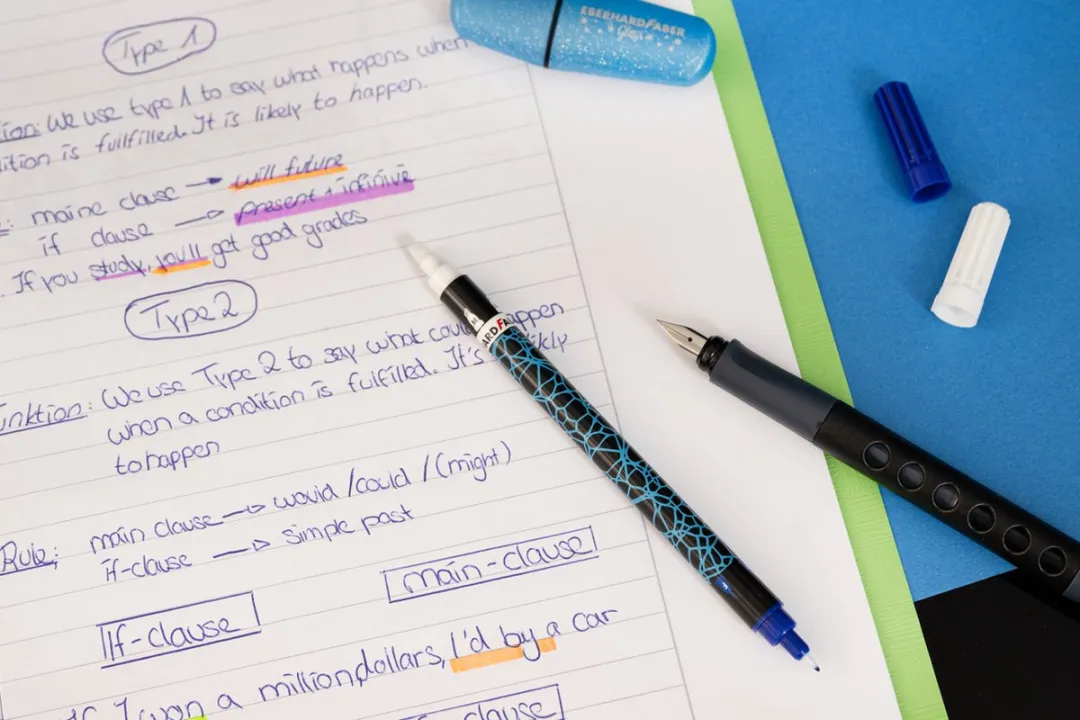 Type 1
tion: We use type 1 to say what happens when
dition is fullfilled. It is likely to happen.
e: maine clause → will future
if clause → present + infinive
. If you study, you'll get good grades
Type 2
unktion: We use Type 2 to say what could happen
when a condition is fulfilled. It's likly
to happen
Rule: main clause → would /could /(might)
if-clause → simple past
If-clause main-clause
If I won a million dollars, I'd by a car
clause
EBERHARD FABER
Glitzer
ARD FA